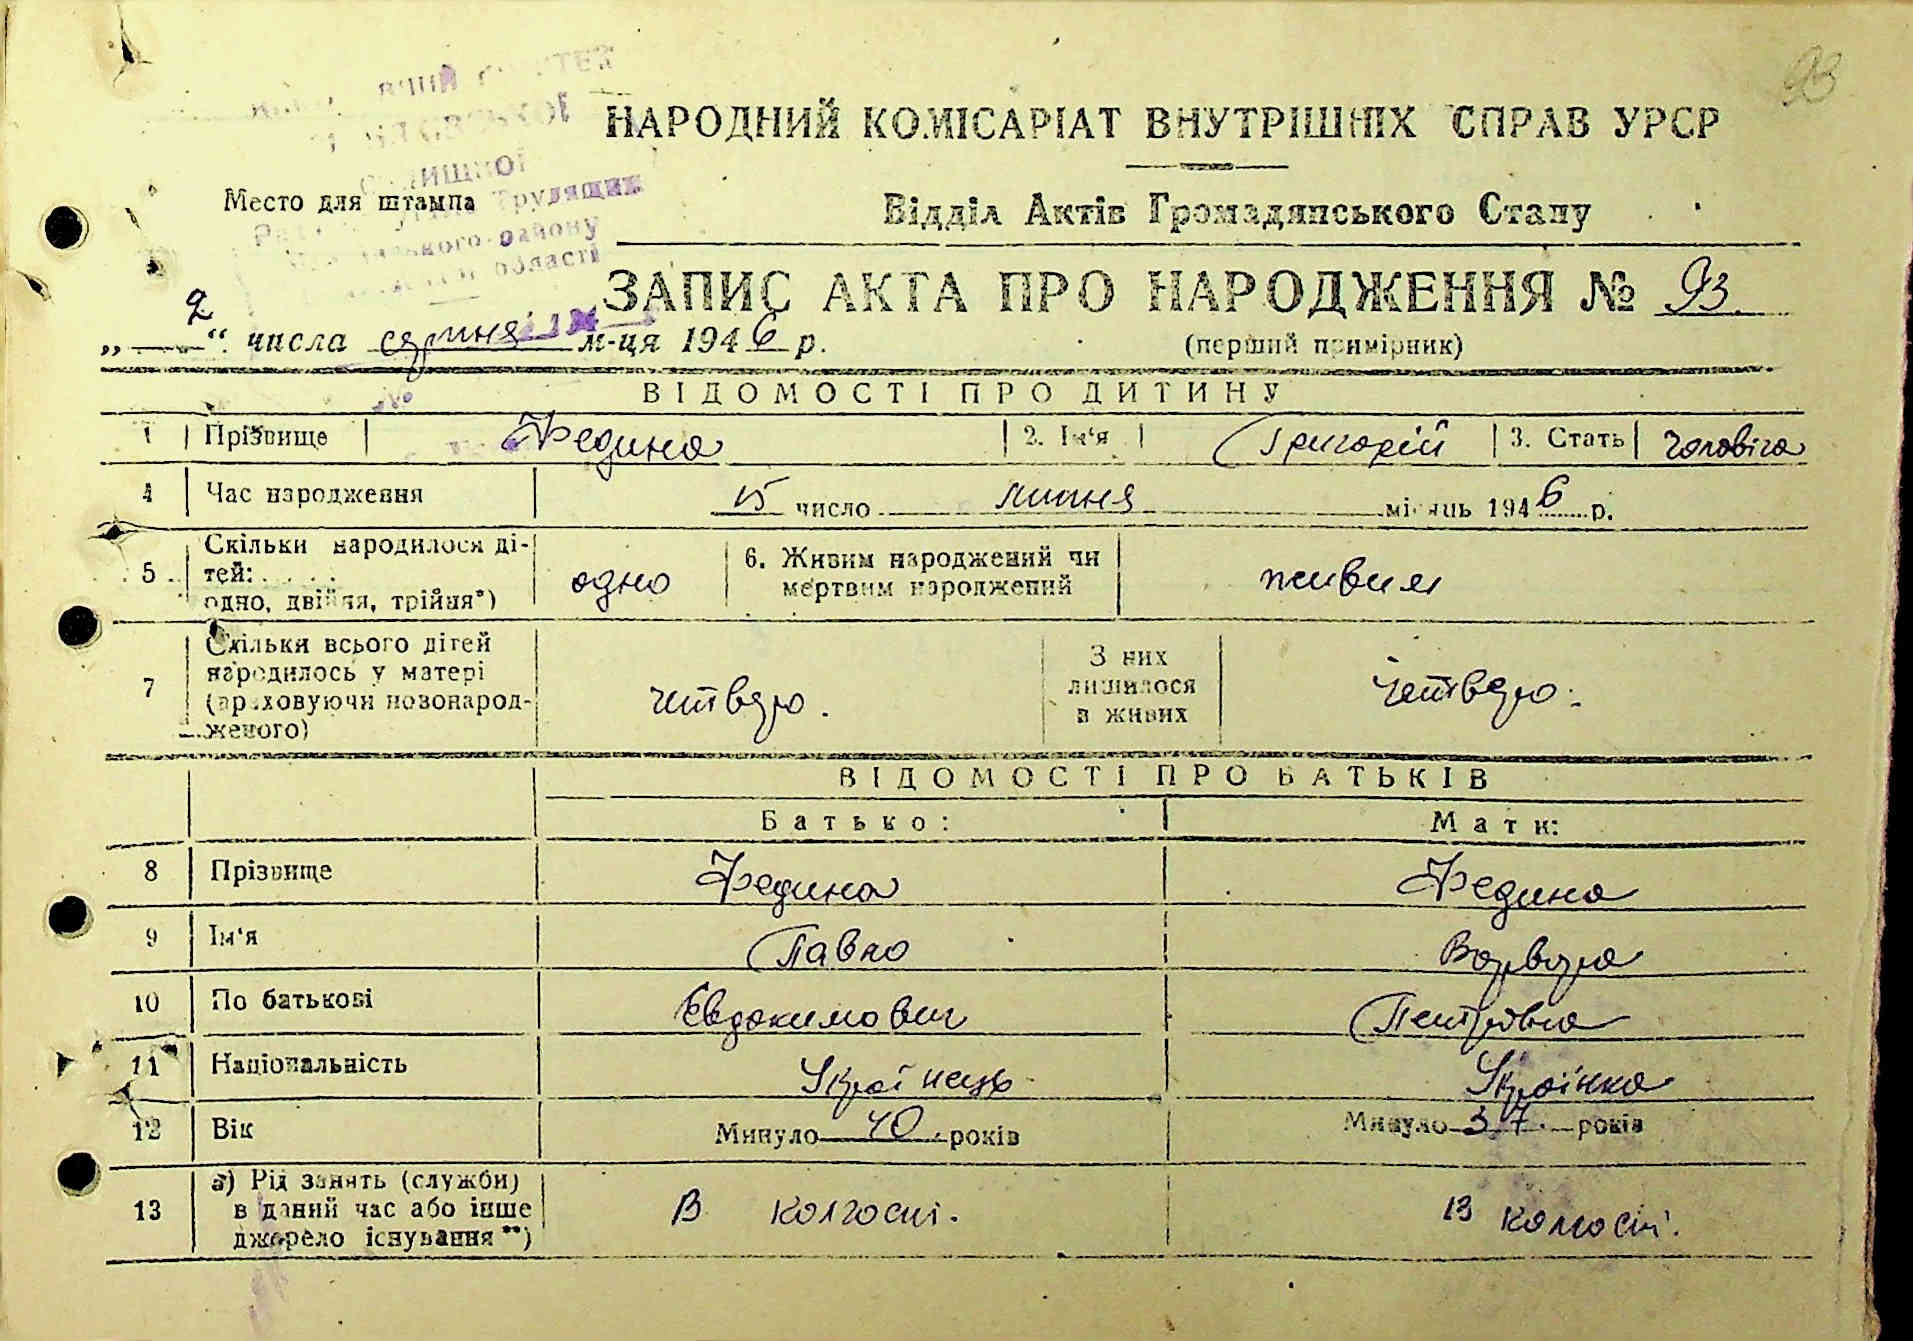 93
НАРОДНИЙ КОМІСАРІАТ ВНУТРІШНІХ СПРАВ УРСР
Место для штампа
Трудящих
району
області
Відділ Актів Громадянського Стану
ЗАПИС АКТА ПРО НАРОДЖЕННЯ № 93
„ 2 “ числа серпня м-ця 1946 р.
(перший примірник)
ВІДОМОСТІ ПРО ДИТИНУ
1 Прізвище Федина 2. Ім'я Григорій 3. Стать чоловіча
4 Час народження 15 число липня місяць 1946 р.
5 Скільки народилося дітей: одно, двійня, трійня*) одно 6. Живим народжений чи мертвим народжений живим
7 Скільки всього дітей народилось у матері (враховуючи новонародженого) четверо. З них лишилося в живих четверо.
ВІДОМОСТІ ПРО БАТЬКІВ
Батько: Мати:
8 Прізвище Федина Федина
9 Ім'я Павло Варвара
10 По батькові Євдокимович Петрівна
11 Національність Українець Українка
12 Вік Минуло 40 років Минуло 37 років
13 а) Рід занять (служби) в даний час або інше джерело існування**) В колгоспі. В колгоспі.